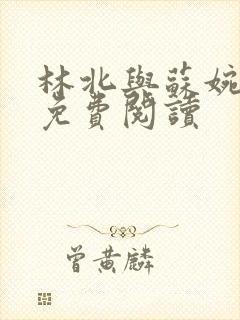 林北與蘇婉
免費閱讀
曾黃麟